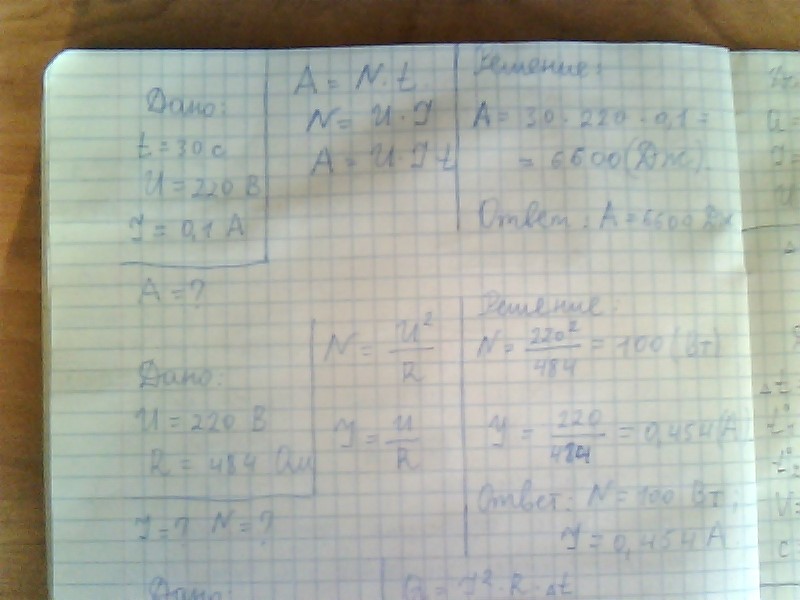 Дано:
t = 30 с
U = 220 В
I = 0,1 А
А = ?
A = N·t
N = U·I
A = U·I·t
Решение:
A = 30 · 220 · 0,1 =
= 6600 (Дж).
Ответ: A = 6600 Дж
Дано:
U = 220 В
R = 484 Ом
I = ? N = ?
N = U²/R
I = U/R
Решение:
N = 220²/484 = 100 (Вт)
I = 220/484 = 0,454 (А)
Ответ: N = 100 Вт;
I = 0,454 А
Дано:
Q = I² · R · Δt